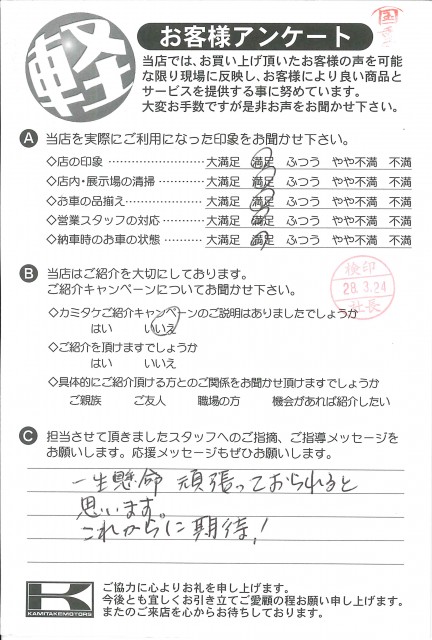 軽
お客様アンケート
当店では、お買い上げ頂いたお客様の声を可能
な限り現場に反映し、お客様により良い商品と
サービスを提供する事に努めています。
大変お手数ですが是非お声をお聞かせ下さい。
A 当店を実際にご利用になった印象をお聞かせ下さい。
◇店の印象 …………………… 大満足 満足 ふつう やや不満 不満
◇店内・展示場の清掃 ………… 大満足 満足 ふつう やや不満 不満
◇お車の品揃え ……………… 大満足 満足 ふつう やや不満 不満
◇営業スタッフの対応 ………… 大満足 満足 ふつう やや不満 不満
◇納車時のお車の状態 ………… 大満足 満足 ふつう やや不満 不満
B 当店はご紹介を大切にしております。
ご紹介キャンペーンについてお聞かせ下さい。
検印
28.3.24
社長
◇カミタケご紹介キャンペーンのご説明はありましたでしょうか
はい いいえ
◇ご紹介を頂けますでしょうか
はい いいえ
◇具体的にご紹介頂ける方とのご関係をお聞かせ頂けますでしょうか
ご親族 ご友人 職場の方 機会があれば紹介したい
C 担当させて頂きましたスタッフへのご指摘、ご指導メッセージを
お願いします。応援メッセージもぜひお願いします。
一生懸命 頑張っておられると
思います。
これからに期待!
K
KAMITAKEMOTORS
ご協力に心よりお礼を申し上げます。
今後とも宜しくお引き立てご愛顧の程お願い申し上げます。
またのご来店を心からお待ちしております。